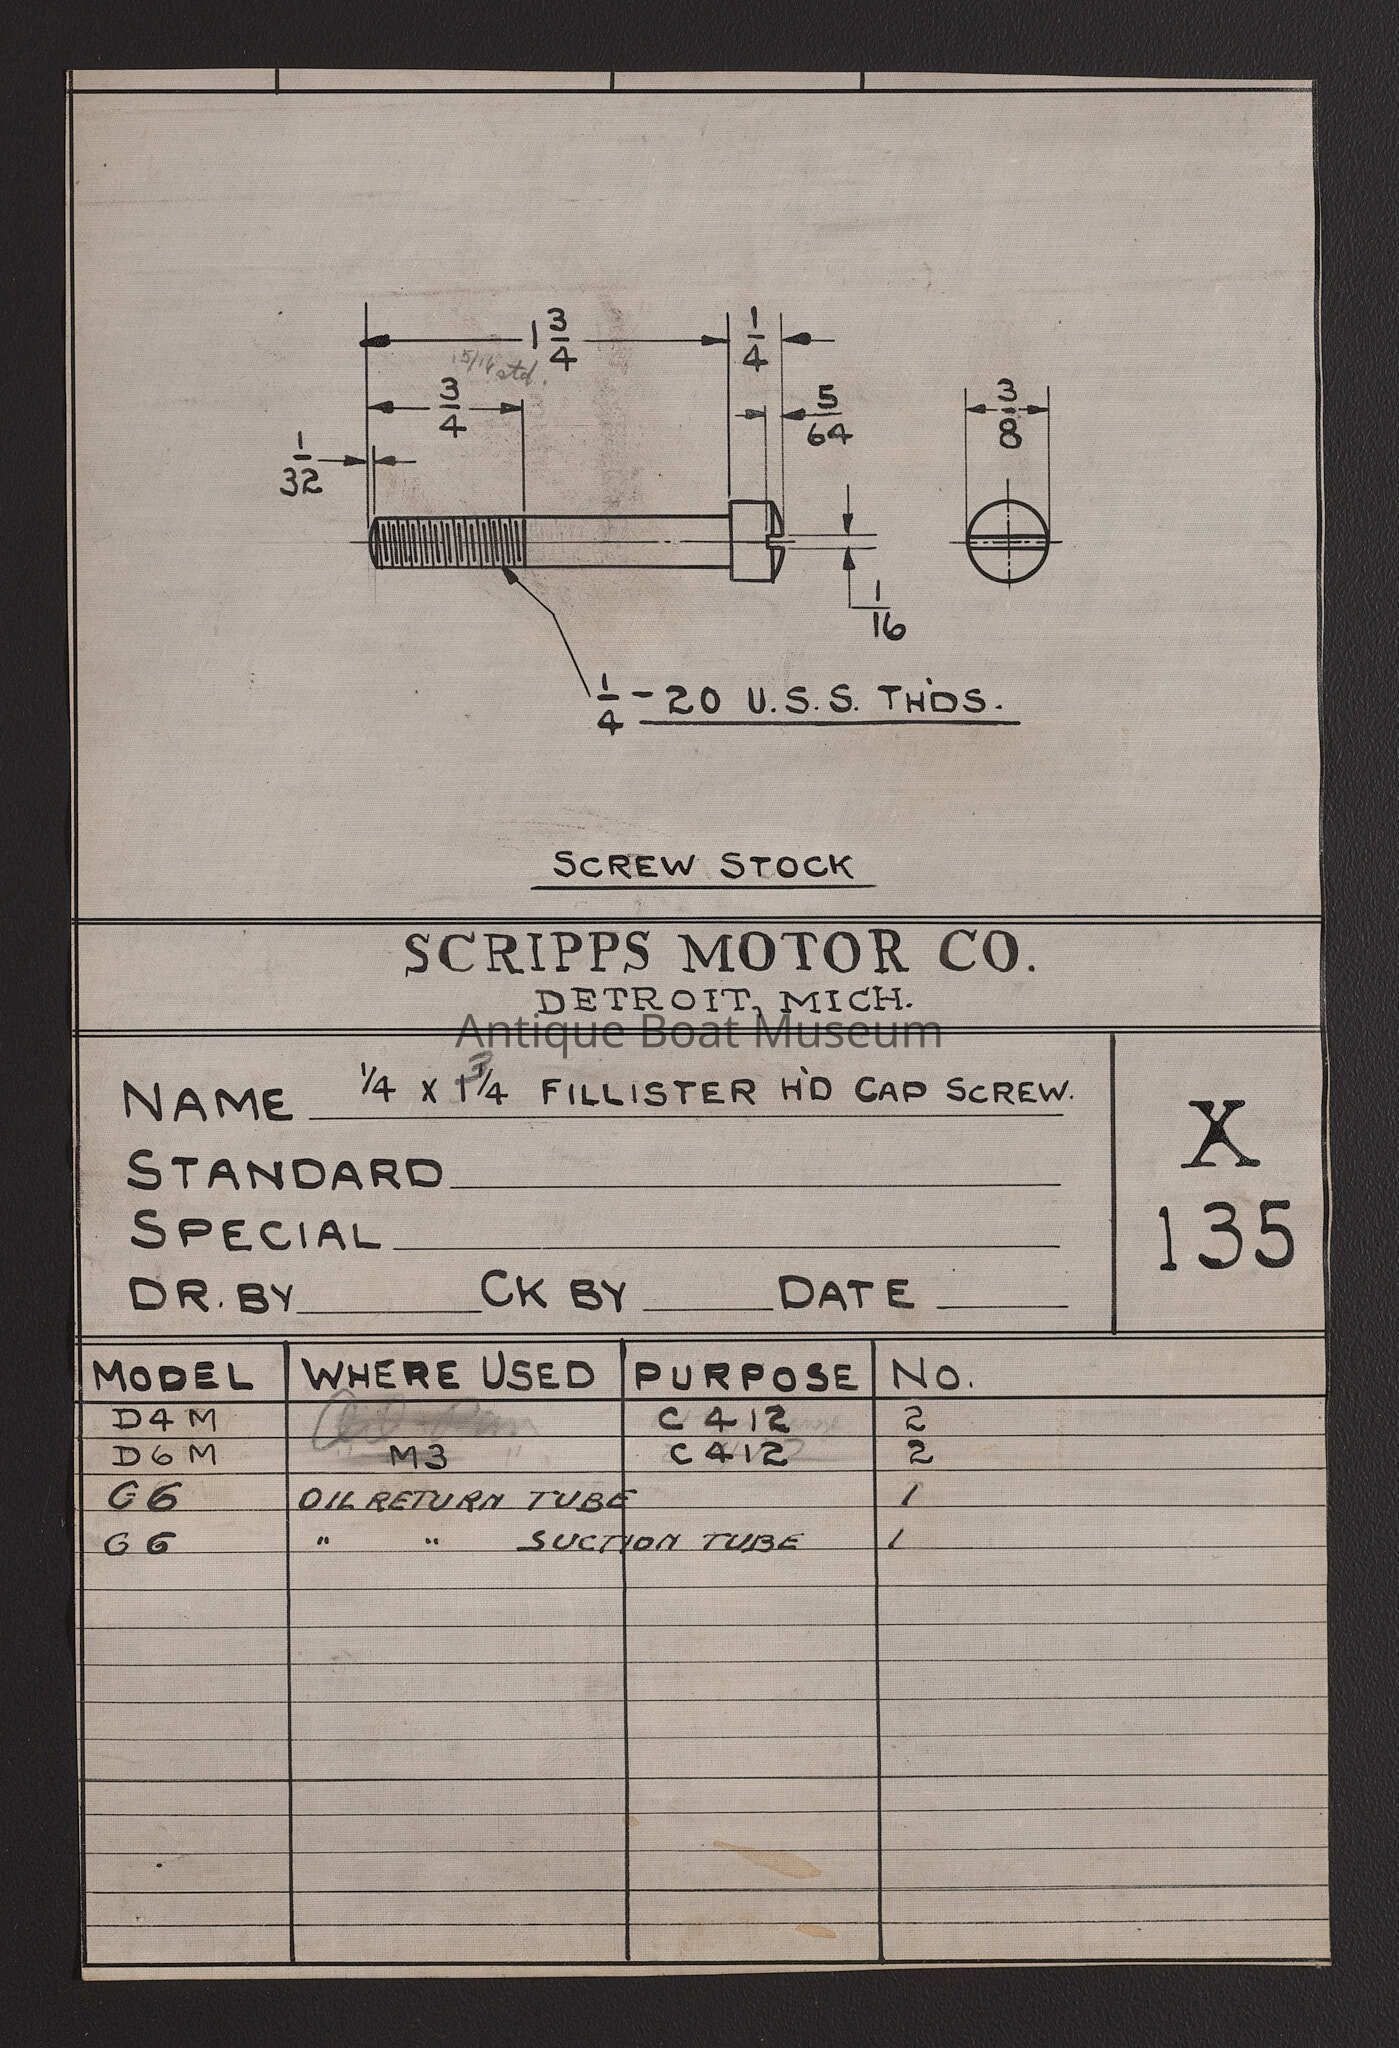 1 3/4
1/4
15/16 std.
3/4
5/64
3/8
1/32
1/16
1/4 - 20 U.S.S. TH'DS.
SCREW STOCK
SCRIPPS MOTOR CO.
DETROIT, MICH.
Antique Boat Museum
NAME 1/4 X 1 3/4 FILLISTER H'D CAP SCREW.
STANDARD
SPECIAL
DR. BY CK BY DATE
X
135
MODEL WHERE USED PURPOSE NO.
D4M C412 2
D6M M3 C412 2
G6 OIL RETURN TUBE 1
G6 " " SUCTION TUBE 1